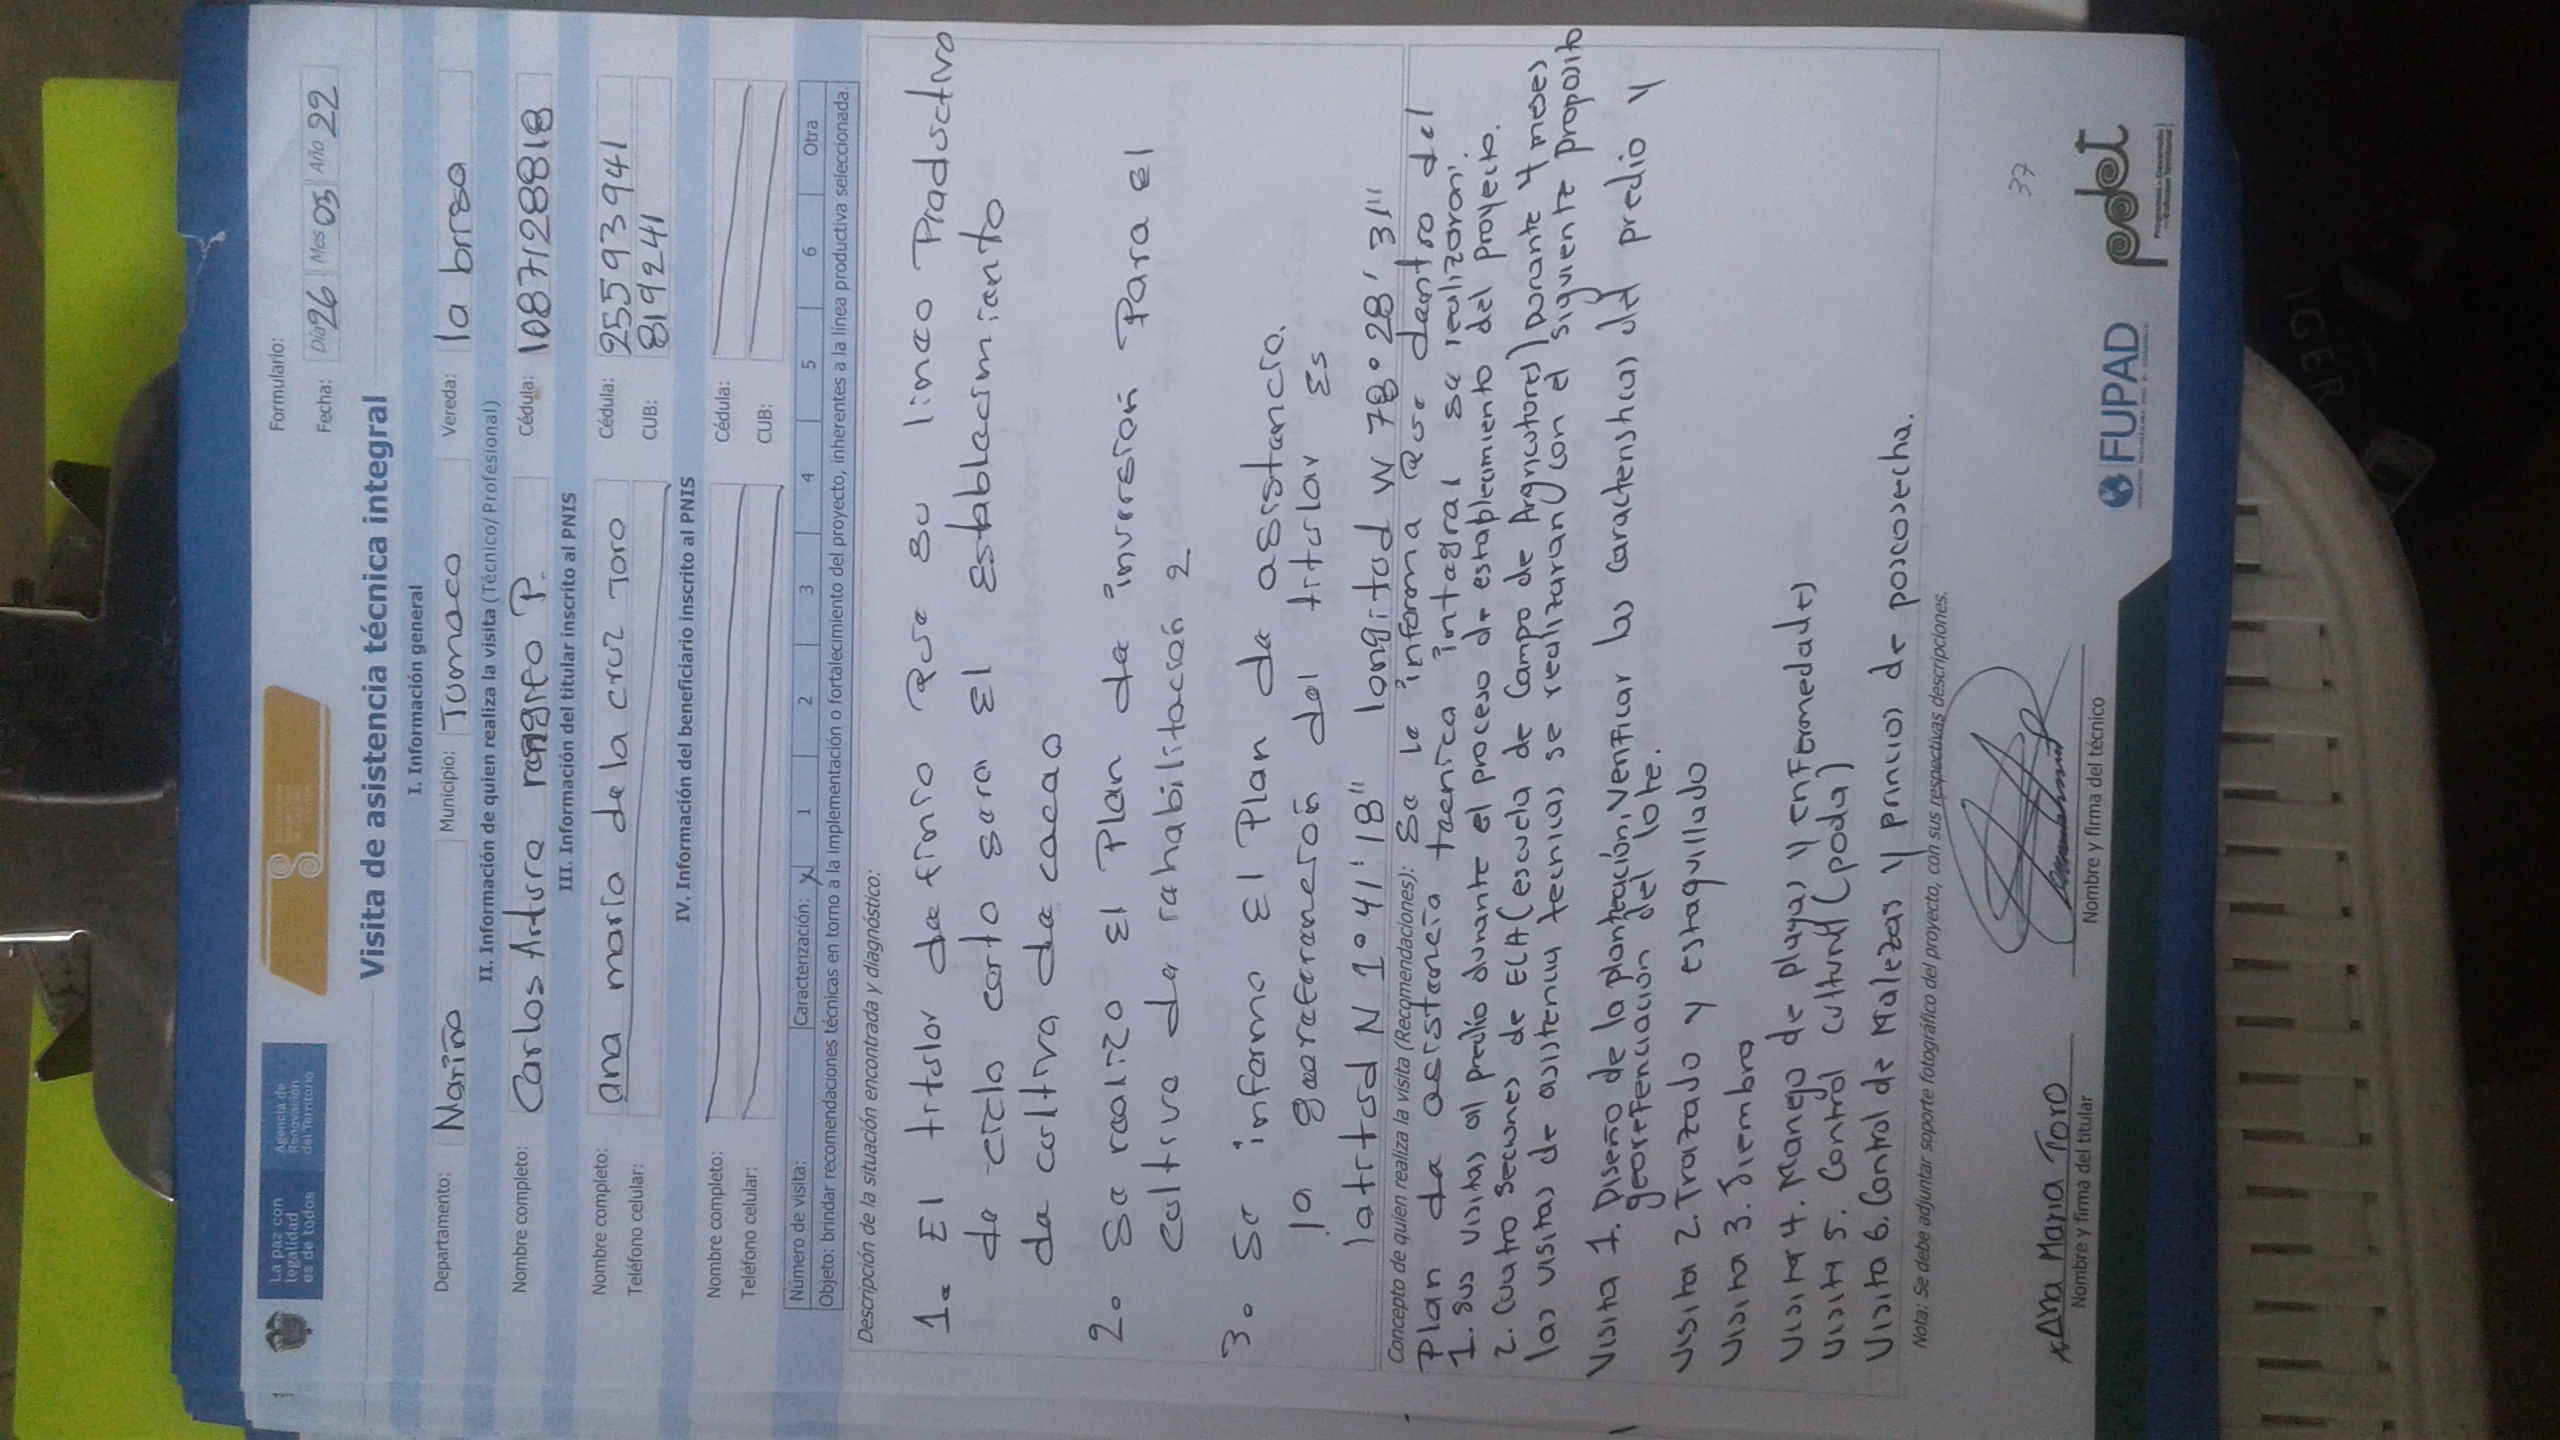 La paz con
legalidad
es de todos
Agencia de
Renovación
del Territorio
Formulario:
Fecha: Día 26 Mes 05 Año 22
Visita de asistencia técnica integral
I. Información general
Departamento: Nariño Municipio: Tumaco Vereda: la brisa
II. Información de quien realiza la visita (Técnico/Profesional)
Nombre completo: Carlos Arturo rengifo P. Cédula: 1087128818
III. Información del titular inscrito al PNIS
Nombre completo: ana maria de la cruz Toro Cédula: 25593941
Teléfono celular: CUB: 819241
IV. Información del beneficiario inscrito al PNIS
Nombre completo: Cédula:
Teléfono celular: CUB:
Número de visita: Caracterización: X 1 2 3 4 5 6 Otra
Objeto: brindar recomendaciones técnicas en torno a la implementación o fortalecimiento del proyecto, inherentes a la línea productiva seleccionada.
Descripción de la situación encontrada y diagnóstico:
1. El titular definio que su linea Productiva
de ciclo corto sera El Establecimiento
de cultivo de cacao
2. Se realizo El Plan de inversion Para El
cultivo de rehabilitacion 2
3. Se informo El Plan de asistencia.
la georeferencion del titular Es
latitud N 1° 41' 18" longitud W 78° 28' 31"
Concepto de quien realiza la visita (Recomendaciones): Se le informa que dentro del
Plan de asistencia tecnica integral se realizaran:
1. sus visitas al predio durante el proceso de establecimiento del proyecto.
2. Cuatro secciones de ECA (escuela de Campo de Agricultores) Durante 4 meses
las visitas de asistencia tecnicas se realizaran con el siguiente proposito
Visita 1. Diseño de la plantación, verificar las caracteristicas del predio y
georeferenciación del lote.
Visita 2. Trazado y estaquillado
Visita 3. Siembra
Visita 4. Manejo de plagas y enfermedades
Visita 5. Control cultural (poda)
Visita 6. Control de Malezas y principios de poscosecha.
Nota: Se debe adjuntar soporte fotográfico del proyecto, con sus respectivas descripciones.
Ana Maria Toro
Nombre y firma del titular
Nombre y firma del técnico
37
FUPAD
pdet